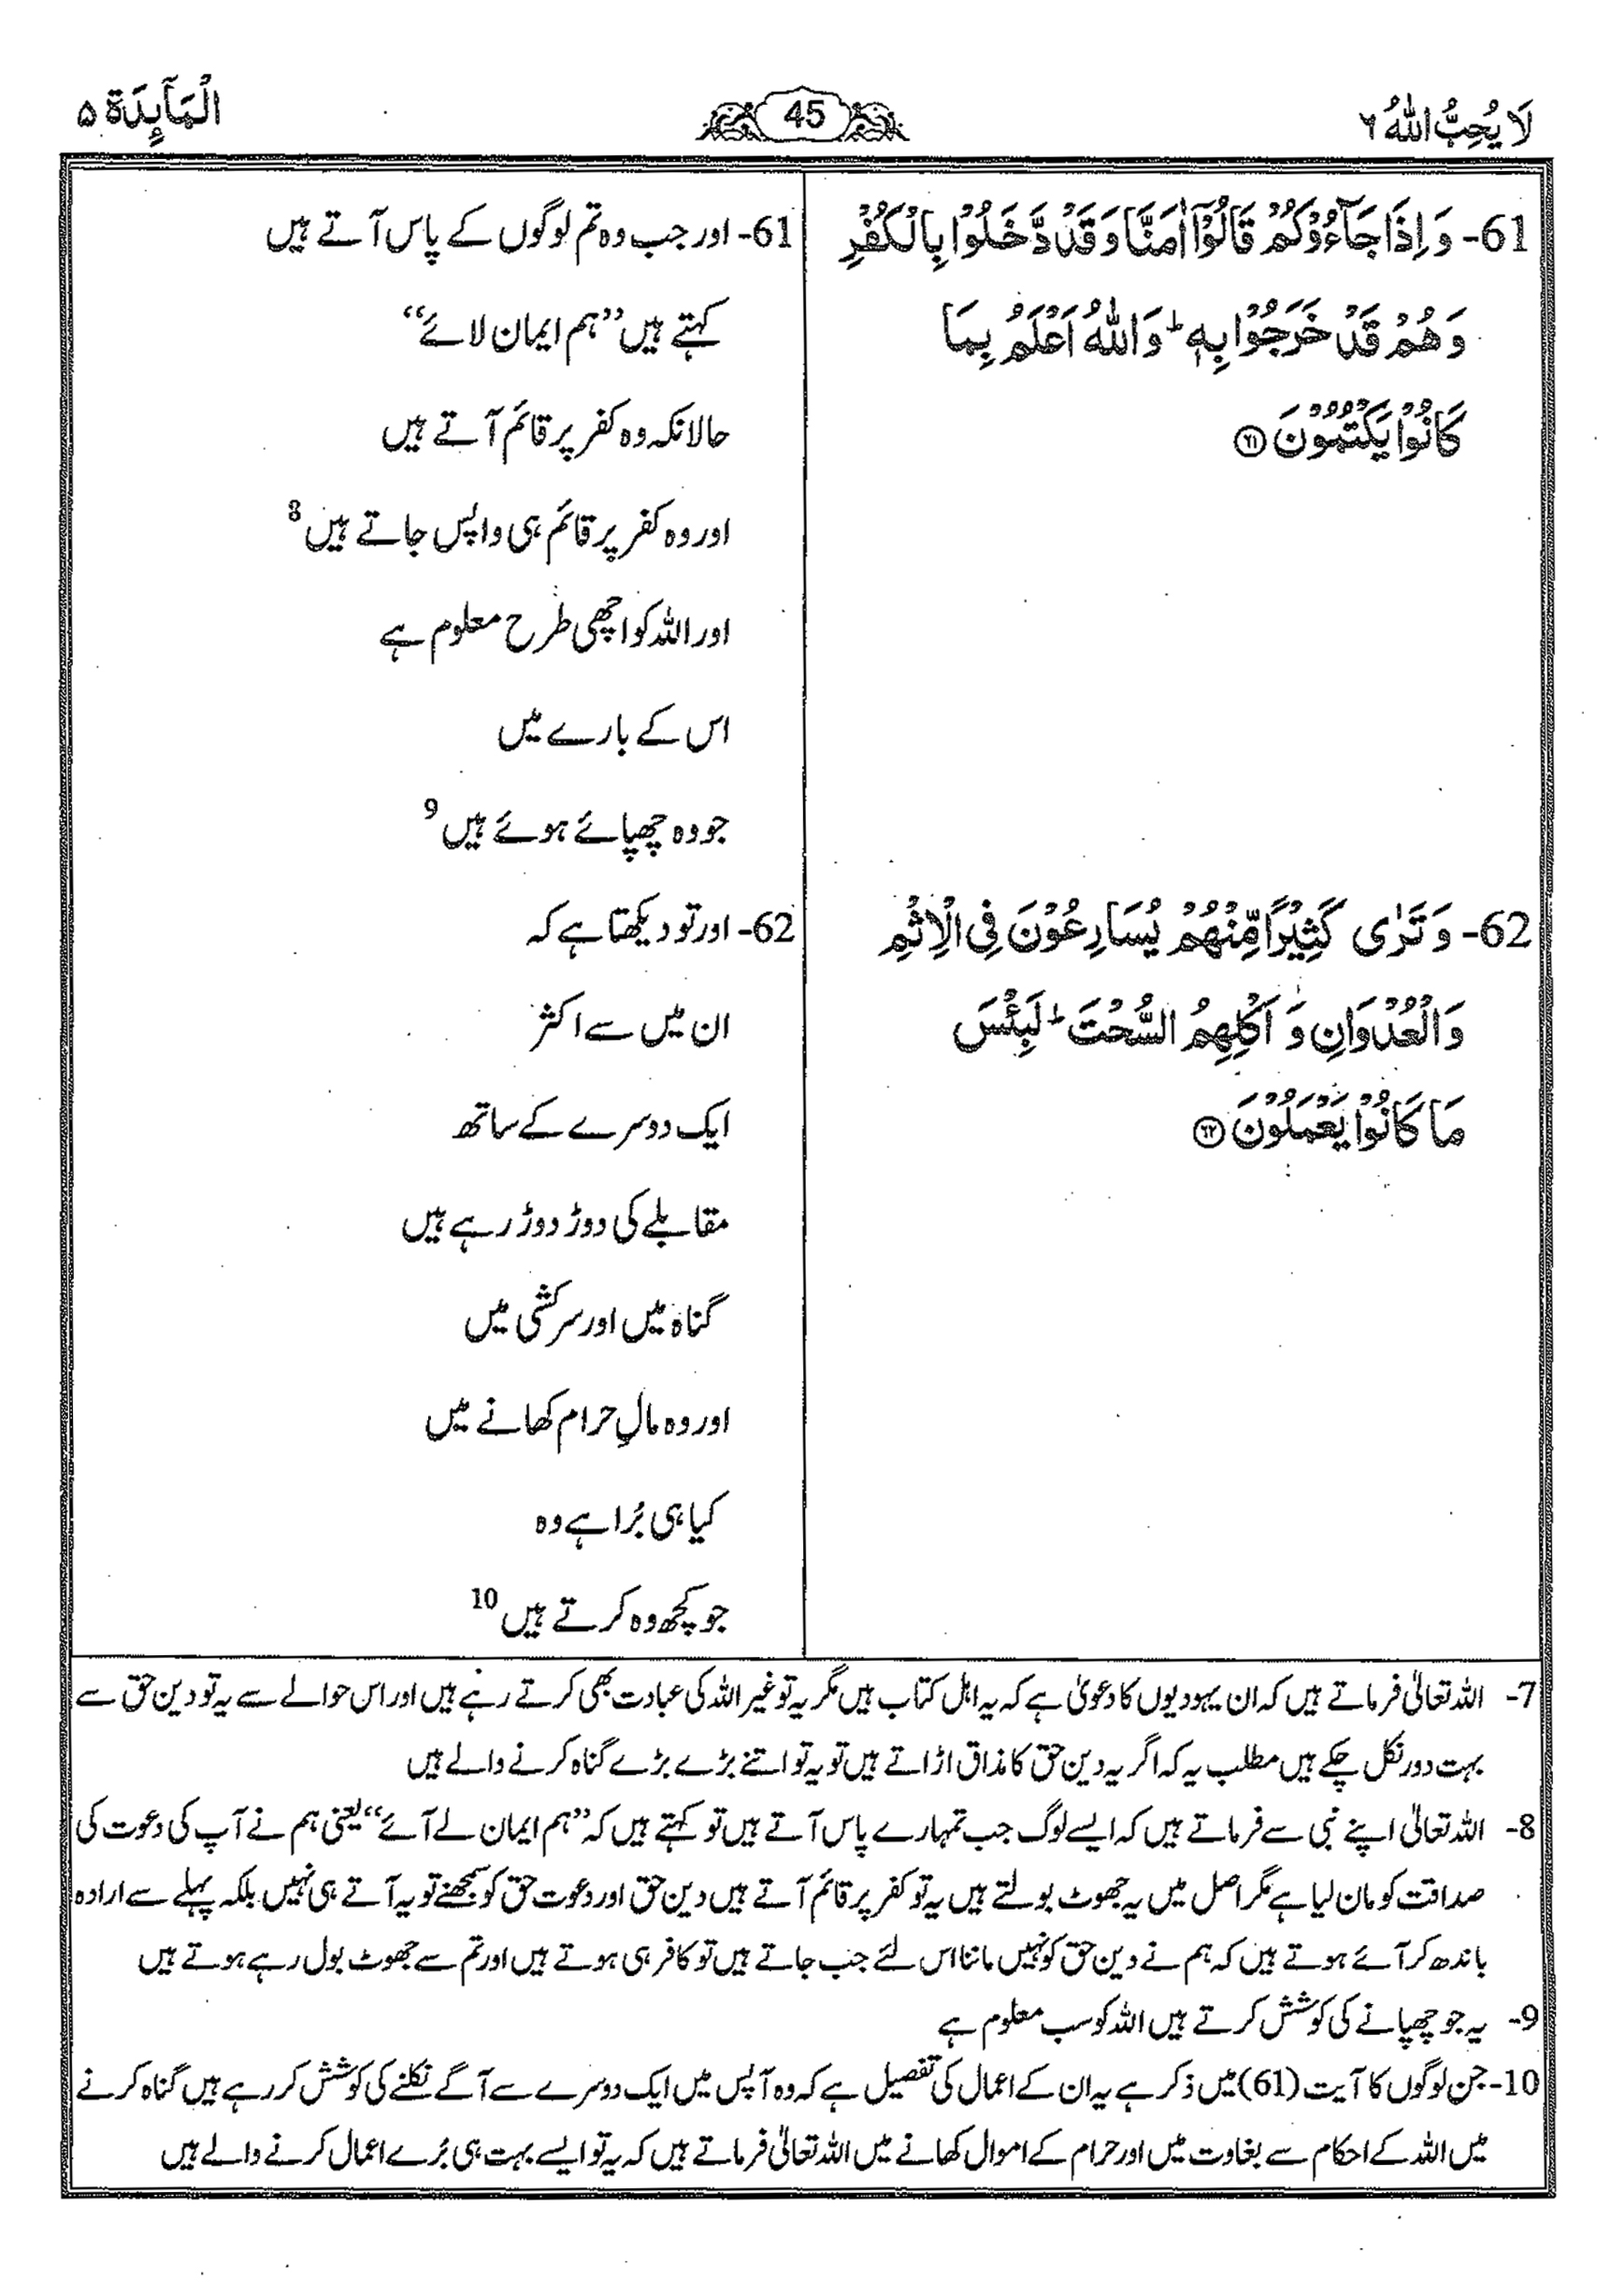 لَا یُحِبُّ اللّٰهُ ۶
45
الْمَآئِدَة ۵
61- وَ اِذَا جَآءُوْكُمْ قَالُوْۤا اٰمَنَّا وَ قَدْ دَّخَلُوْا بِالْكُفْرِ
وَ هُمْ قَدْ خَرَجُوْا بِهٖ ؕ وَ اللّٰهُ اَعْلَمُ بِمَا
كَانُوْا یَكْتُمُوْنَ ۶۱
62- وَ تَرٰى كَثِیْرًا مِّنْهُمْ یُسَارِعُوْنَ فِی الْاِثْمِ
وَ الْعُدْوَانِ وَ اَكْلِهِمُ السُّحْتَ ؕ لَبِئْسَ
مَا كَانُوْا یَعْمَلُوْنَ ۶۲
61- اور جب وہ تم لوگوں کے پاس آتے ہیں
کہتے ہیں ’’ہم ایمان لائے‘‘
حالانکہ وہ کفر پر قائم آتے ہیں
اور وہ کفر پر قائم ہی واپس جاتے ہیں 8
اور اللہ کو اچھی طرح معلوم ہے
اس کے بارے میں
جو وہ چھپائے ہوئے ہیں 9
62- اور تو دیکھتا ہے کہ
ان میں سے اکثر
ایک دوسرے کے ساتھ
مقابلے کی دوڑ دوڑ رہے ہیں
گناہ میں اور سرکشی میں
اور وہ مالِ حرام کھانے میں
کیا ہی بُرا ہے وہ
جو کچھ وہ کرتے ہیں 10
7- اللہ تعالیٰ فرماتے ہیں کہ ان یہودیوں کا دعویٰ ہے کہ یہ اہل کتاب ہیں مگر یہ تو غیر اللہ کی عبادت بھی کرتے رہے ہیں اور اس حوالے سے یہ تو دین حق سے
بہت دور نکل چکے ہیں مطلب یہ کہ اگر یہ دین حق کا مذاق اڑاتے ہیں تو یہ تو اتنے بڑے بڑے گناہ کرنے والے ہیں
8- اللہ تعالیٰ اپنے نبی سے فرماتے ہیں کہ ایسے لوگ جب تمہارے پاس آتے ہیں تو کہتے ہیں کہ ’’ہم ایمان لے آئے‘‘ یعنی ہم نے آپ کی دعوت کی
صداقت کو مان لیا ہے مگر اصل میں یہ جھوٹ بولتے ہیں یہ تو کفر پر قائم آتے ہیں دین حق اور دعوت حق کو سمجھنے تو یہ آتے ہی نہیں بلکہ پہلے سے ارادہ
باندھ کر آئے ہوتے ہیں کہ ہم نے دین حق کو نہیں ماننا اس لئے جب جاتے ہیں تو کافر ہی ہوتے ہیں اور تم سے جھوٹ بول رہے ہوتے ہیں
9- یہ جو چھپانے کی کوشش کرتے ہیں اللہ کو سب معلوم ہے
10- جن لوگوں کا آیت (61) میں ذکر ہے یہ ان کے اعمال کی تفصیل ہے کہ وہ آپس میں ایک دوسرے سے آگے نکلنے کی کوشش کر رہے ہیں گناہ کرنے
میں اللہ کے احکام سے بغاوت میں اور حرام کے اموال کھانے میں اللہ تعالیٰ فرماتے ہیں کہ یہ تو ایسے بہت ہی بُرے اعمال کرنے والے ہیں